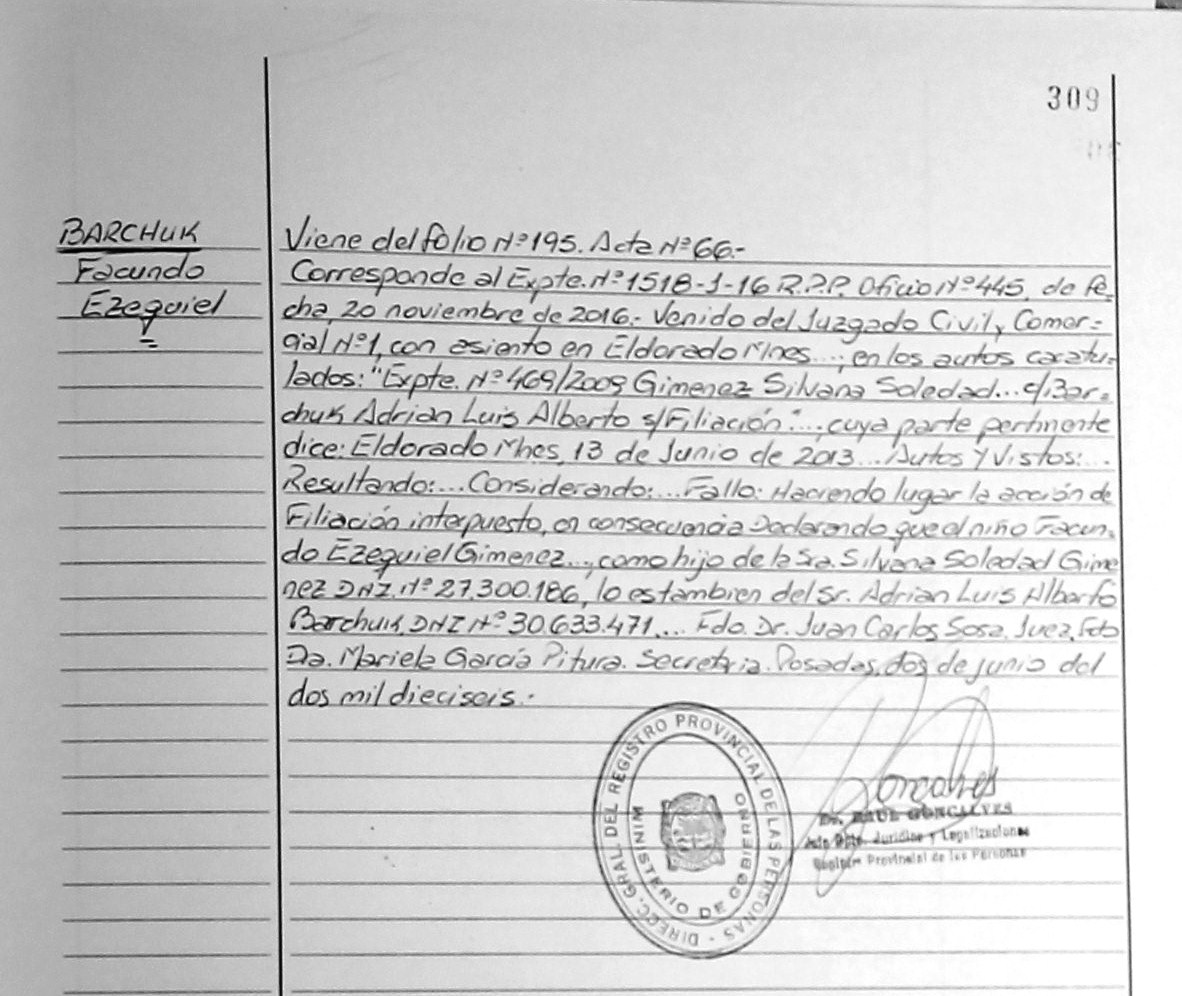 309
BARCHUK
Facundo
Ezequiel
Viene del folio Nº 195. Acta Nº 66.-
Corresponde al Expte. Nº 1518-1-16 R.P.P. Oficio Nº 445, de fe-
cha, 20 noviembre de 2016.- Venido del Juzgado Civil y Comer=
cial Nº 1, con asiento en Eldorado Mnes...; en los autos caratu=
lados: "Expte. Nº 469/2009 Gimenez Silvana Soledad... c/Bar=
chuk Adrian Luis Alberto s/Filiación"..., cuya parte pertinente
dice: Eldorado Mnes, 13 de Junio de 2013... Autos y Vistos:...
Resultando:... Considerando:... Fallo: Haciendo lugar la acción de
Filiación interpuesto, en consecuencia Declarando que el niño Facun-
do Ezequiel Gimenez..., como hijo de la Sra. Silvana Soledad Gime
nez DNI. Nº 27.300.186, lo es tambien del Sr. Adrian Luis Alberto
Barchuk, DNI Nº 30.633.471.... Fdo. Dr. Juan Carlos Sosa, Juez, Fdo
Da. Mariela García Pitura. Secretaria. Posadas, dos de junio del
dos mil dieciseis.-
DIRECC. GRAL DEL REGISTRO PROVINCIAL DE LAS PERSONAS -
MINISTERIO DE GOBIERNO
Goncalves
Dr. RAUL GONCALVES
Jefe Dpto. Jurídico y Legalizaciones
Registro Provincial de las Personas